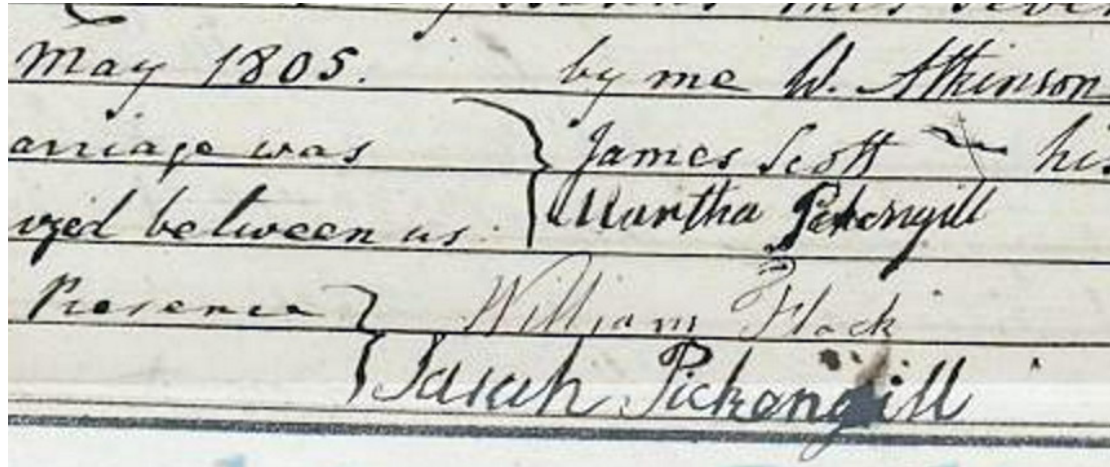 May 1805. by me W. Atkinson
arriage was James Scott his
ized between us Martha Pickengill
Presence William Flock
Sarah Pickengill